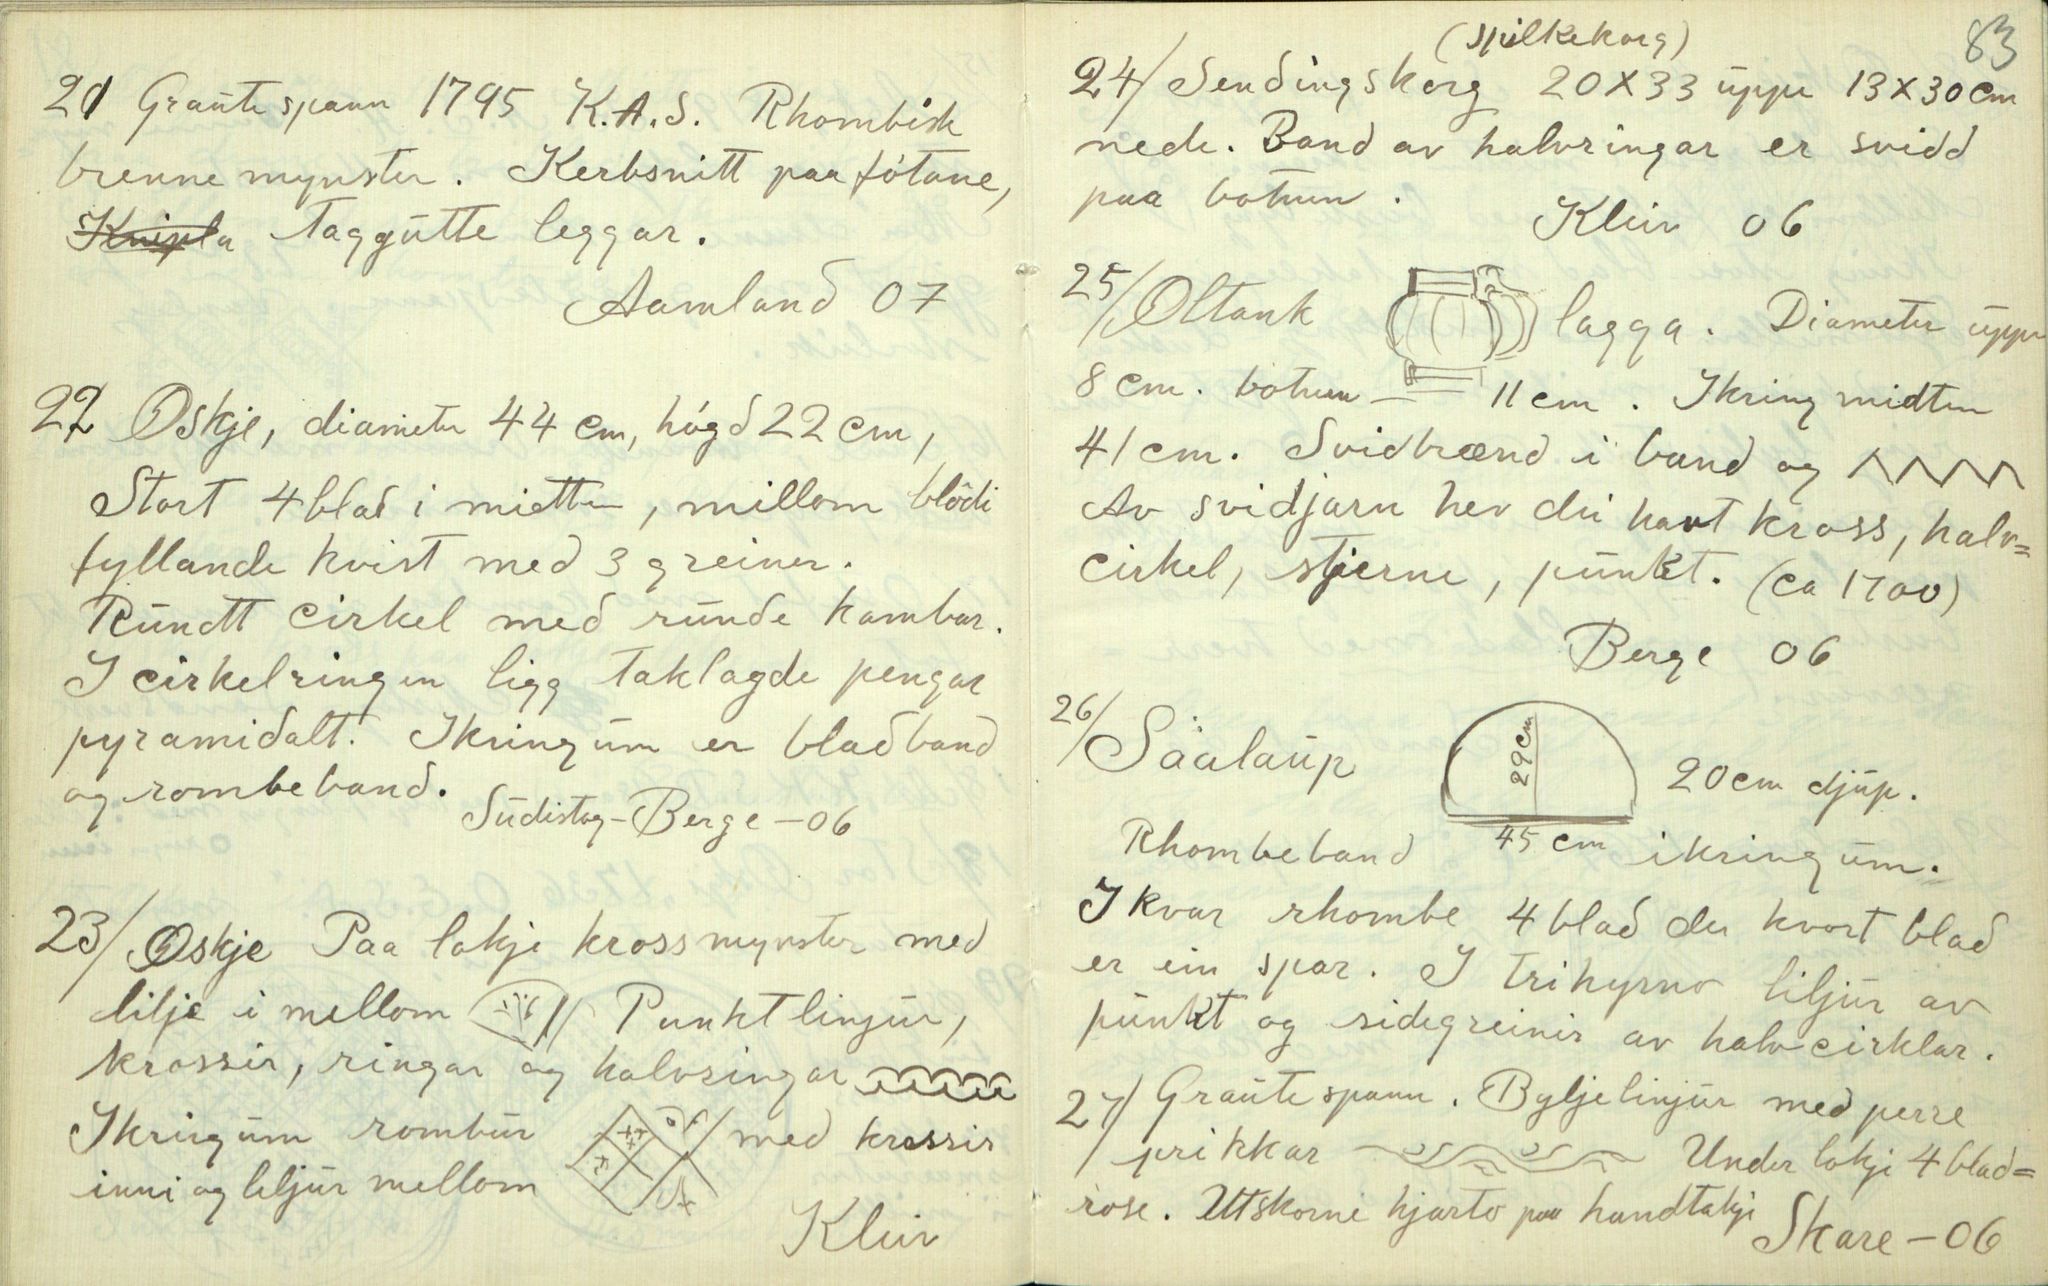 21 Graute spann 1795 K.A.S. Rhombisk
brenne mynster. Kerbsnitt paa fótane,
Taggutte leggar.
Aamland 07
22 Øskje, diameter 44 cm, högd 22 cm,
Stort 4 blad i midtten, millom blödi
fyllande kvist med 3 greiner.
Rundtt cirkel med runde kambar.
I cirkelringen ligg taklagde pengar
pyramidalt. Ikring um er bladband
og rombeband.
Sudistog - Berge - 06
23/ Øskje Paa lokje krossmynster med
lilje i mellom Punktlinjur,
krossir, ringar og halvringar
Ikring um rombur med krossir
inni og liljur mellom
Kleiv
83
(spilkekorg)
24/ Sendingskorg 20 X 33 uppe 13 X 30 cm
nede. Band av halvringar er svidd
paa botnen.
Kleiv 06
25/ Øltank lagga. Diameter uppe
8 cm. botnen — 11 cm. Ikring midten
41 cm. Svidbrænd i band og
Av svidjarn hev dei havt kross, halv=
cirkel, stjerne, punkt. (ca 1700)
Berge 06
26/ Sáalaup 29 cm 20 cm djup.
Rhombeband 45 cm ikring um.
I kvar rhombe 4 blad der kvart blad
er ein spar. I trihyrno liljur av
punkt og sidegreinir av halvcirklar.
27/ Graute spann. Byljelinjur med perre
prikkar Under lokji 4 blad=
rose. Uttskorne hjarto paa handtakji
Skare - 06